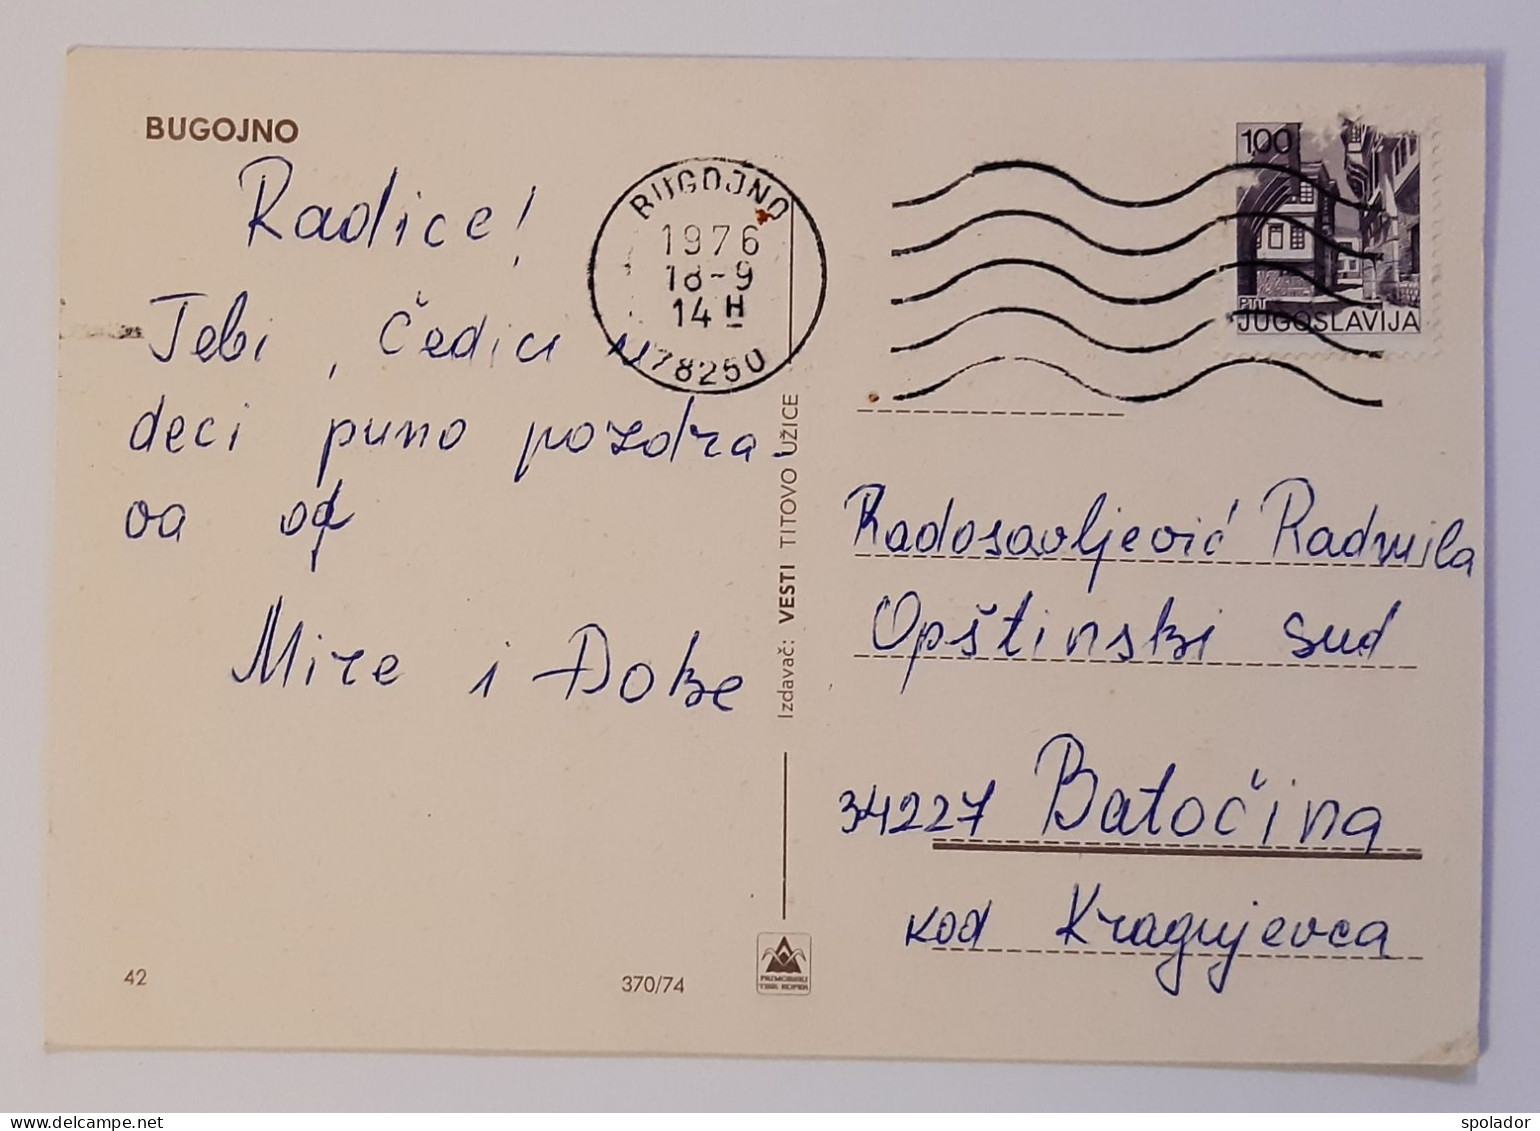 BUGOJNO
Radice!
Tebi, Čedici u
deci puno pozdra-
va od
Mire i Đoke
BUGOJNO
1976
18-9
14 H
78250
1,00
PTT
JUGOSLAVIJA
Izdavač: VESTI TITOVO UŽICE
Radosavljević Radmila
Opštinski sud
34227 Batočina
kod Kragujevca
42
370/74
TISK KOPER
spolador